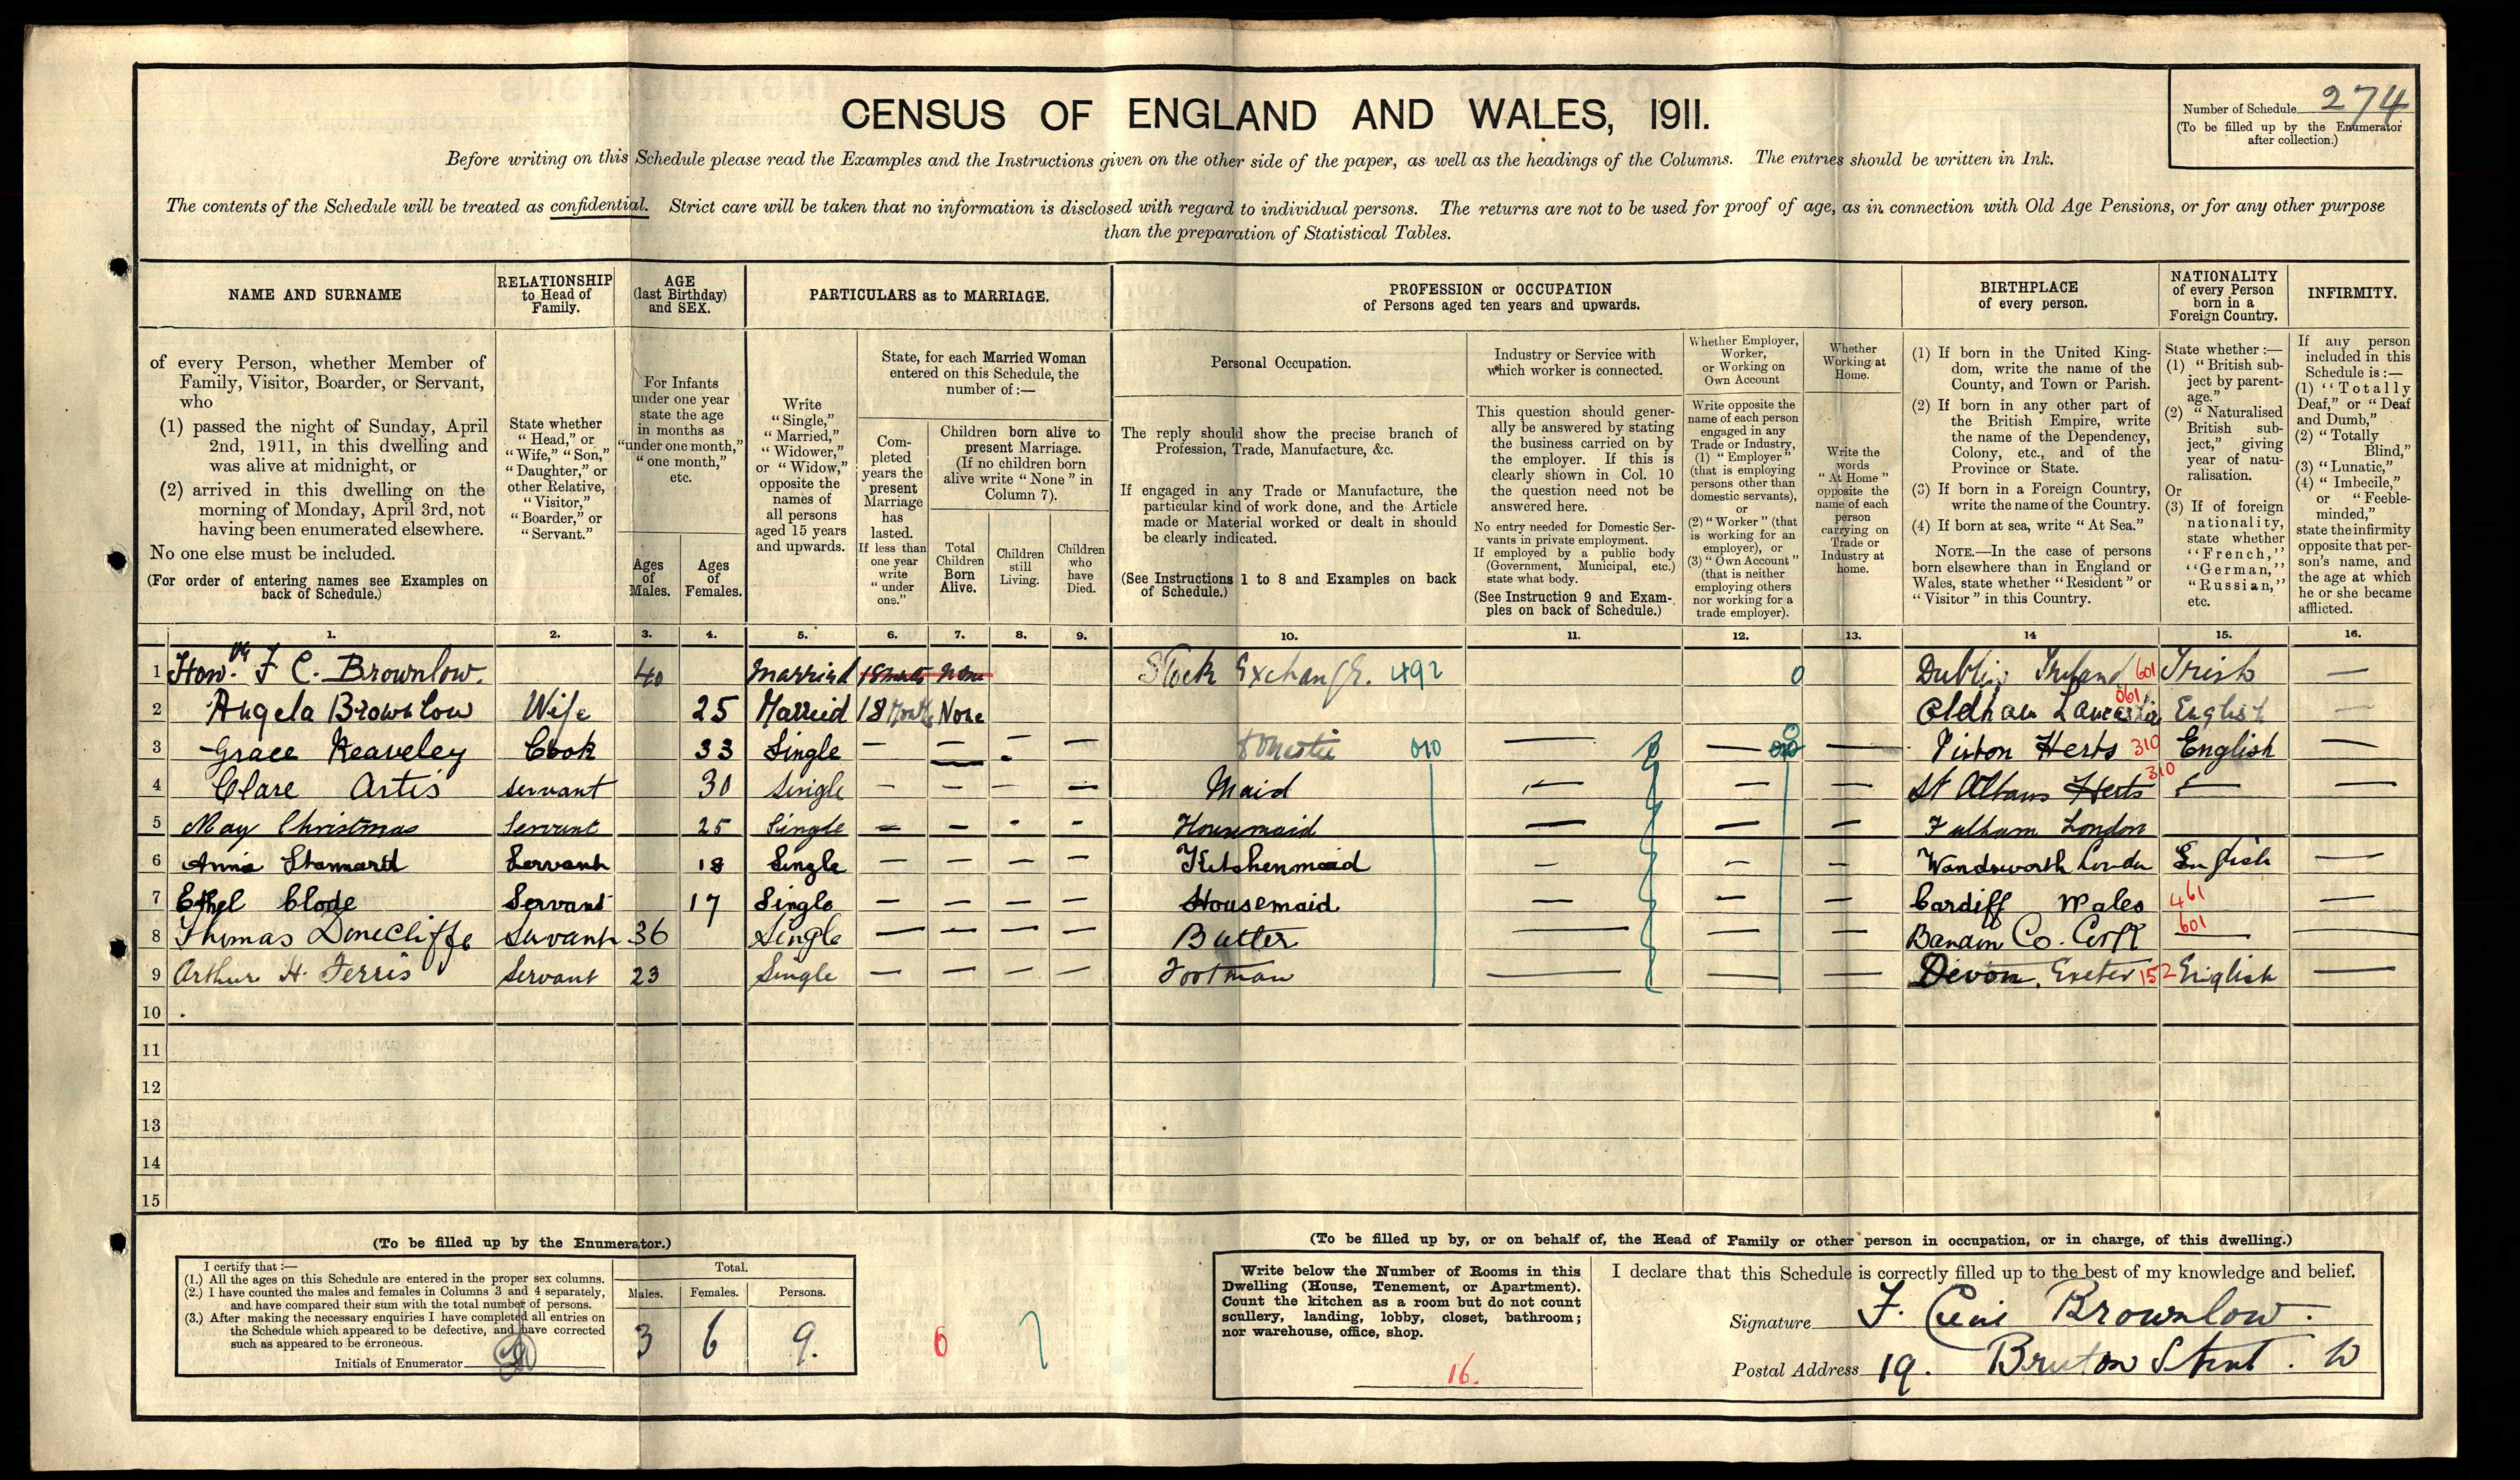 CENSUS OF ENGLAND AND WALES, 1911.
Number of Schedule 274
(To be filled up by the Enumerator
after collection.)
Before writing on this Schedule please read the Examples and the Instructions given on the other side of the paper, as well as the headings of the Columns. The entries should be written in Ink.
The contents of the Schedule will be treated as confidential. Strict care will be taken that no information is disclosed with regard to individual persons. The returns are not to be used for proof of age, as in connection with Old Age Pensions, or for any other purpose
than the preparation of Statistical Tables.
NAME AND SURNAME
of every Person, whether Member of
Family, Visitor, Boarder, or Servant,
who
(1) passed the night of Sunday, April
2nd, 1911, in this dwelling and
was alive at midnight, or
(2) arrived in this dwelling on the
morning of Monday, April 3rd, not
having been enumerated elsewhere.
No one else must be included.
(For order of entering names see Examples on
back of Schedule.)
RELATIONSHIP
to Head of
Family.
State whether
"Head," or
"Wife," "Son,"
"Daughter," or
other Relative,
"Visitor,"
"Boarder," or
"Servant."
AGE
(last Birthday)
and SEX.
For Infants
under one year
state the age
in months as
"under one month,"
"one month,"
etc.
Ages
of
Males.
Ages
of
Females.
PARTICULARS as to MARRIAGE.
Write
"Single,"
"Married,"
"Widower,"
or "Widow,"
opposite the
names of
all persons
aged 15 years
and upwards.
State, for each Married Woman
entered on this Schedule, the
number of:—
Com-
pleted
years the
present
Marriage
has
lasted.
If less than
one year
write
"under
one."
Children born alive to
present Marriage.
(If no children born
alive write "None" in
Column 7).
Total
Children
Born
Alive.
Children
still
Living.
Children
who
have
Died.
PROFESSION or OCCUPATION
of Persons aged ten years and upwards.
Personal Occupation.
The reply should show the precise branch of
Profession, Trade, Manufacture, &c.
If engaged in any Trade or Manufacture, the
particular kind of work done, and the Article
made or Material worked or dealt in should
be clearly indicated.
(See Instructions 1 to 8 and Examples on back
of Schedule.)
Industry or Service with
which worker is connected.
This question should gener-
ally be answered by stating
the business carried on by
the employer. If this is
clearly shown in Col. 10
the question need not be
answered here.
No entry needed for Domestic Ser-
vants in private employment.
If employed by a public body
(Government, Municipal, etc.)
state what body.
(See Instruction 9 and Exam-
ples on back of Schedule.)
Whether Employer,
Worker,
or Working on
Own Account
Write opposite the
name of each person
engaged in any
Trade or Industry,
(1) "Employer"
(that is employing
persons other than
domestic servants),
or
(2) "Worker" (that
is working for an
employer), or
(3) "Own Account"
(that is neither
employing others
nor working for a
trade employer).
Whether
Working at
Home.
Write the
words
"At Home"
opposite the
name of each
person
carrying on
Trade or
Industry at
home.
BIRTHPLACE
of every person.
(1) If born in the United King-
dom, write the name of the
County, and Town or Parish.
(2) If born in any other part of
the British Empire, write
the name of the Dependency,
Colony, etc., and of the
Province or State.
(3) If born in a Foreign Country,
write the name of the Country.
(4) If born at sea, write "At Sea."
NOTE.—In the case of persons
born elsewhere than in England or
Wales, state whether "Resident" or
"Visitor" in this Country.
NATIONALITY
of every Person
born in a
Foreign Country.
State whether:—
(1) "British sub-
ject by parent-
age."
(2) "Naturalised
British sub-
ject," giving
year of natu-
ralisation.
Or
(3) If of foreign
nationality,
state whether
"French,"
"German,"
"Russian,"
etc.
INFIRMITY.
If any person
included in this
Schedule is:—
(1) "Totally
Deaf," or "Deaf
and Dumb,"
(2) "Totally
Blind,"
(3) "Lunatic,"
(4) "Imbecile,"
or "Feeble-
minded,"
state the infirmity
opposite that per-
son's name, and
the age at which
he or she became
afflicted.
1. 2. 3. 4. 5. 6. 7. 8. 9. 10. 11. 12. 13. 14 15. 16.
1 Hon. F C. Brownlow. 40 Married None Stock Exchange. 492 0 Dublin Ireland 601 Irish —
2 Angela Brownlow Wife 25 Married 18 Months None Oldham Lancashire 061 English —
3 Grace Keaveley Cook 33 Single — — — — domestic 010 — — — Pirton Herts 310 English —
4 Clare Artis servant 30 Single — — — — Maid — — — St Albans Herts 310 — —
5 May Christmas Servant 25 Single — — - - Housemaid — — — Fulham London
6 Annie Stannard Servant 18 Single — — — — Kitchenmaid — — — Wandsworth London English —
7 Ethel Clode Servant 17 Single — — — — Housemaid — — — Cardiff Wales 461 —
8 Thomas Donecliffe Servant 36 Single — — — — Butler — — — Bandon Co. Cork 601 — —
9 Arthur H. Ferris Servant 23 Single — — — — Footman — — — Devon. Exeter 152 English —
10
11
12
13
14
15
(To be filled up by the Enumerator.)
I certify that:—
(1.) All the ages on this Schedule are entered in the proper sex columns.
(2.) I have counted the males and females in Columns 3 and 4 separately,
and have compared their sum with the total number of persons.
(3.) After making the necessary enquiries I have completed all entries on
the Schedule which appeared to be defective, and have corrected
such as appeared to be erroneous.
Initials of Enumerator
Total.
Males. Females. Persons.
3 6 9.
6 7
(To be filled up by, or on behalf of, the Head of Family or other person in occupation, or in charge, of this dwelling.)
Write below the Number of Rooms in this
Dwelling (House, Tenement, or Apartment).
Count the kitchen as a room but do not count
scullery, landing, lobby, closet, bathroom;
nor warehouse, office, shop.
16.
I declare that this Schedule is correctly filled up to the best of my knowledge and belief.
Signature F. Brownlow.
Postal Address 19. Bruton Street. W